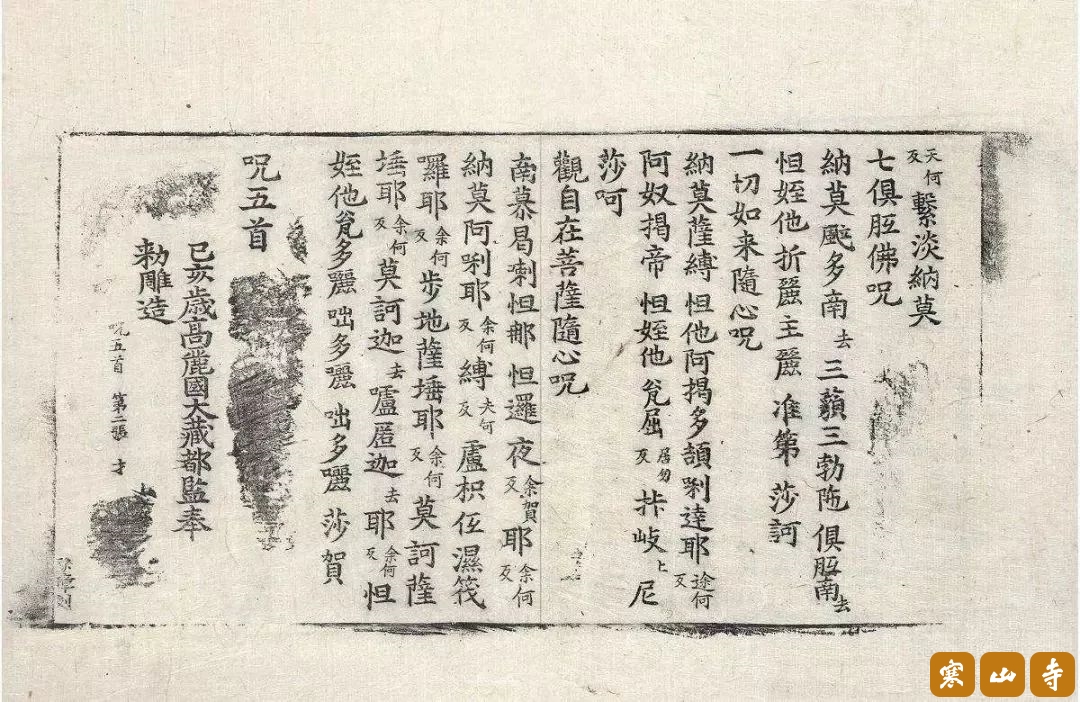 天何反 繫淡納莫
七俱胝佛呪
納莫颭多南去 三藐三勃陁 俱胝南去
怛姪他 折麗主麗 准第 莎訶
一切如来隨心呪
納莫薩縛 怛他阿揭多頡唎達耶途何反
阿奴揭帝 怛姪他 瓮屈居勿反 抃岐上 尼
莎呵
觀自在菩薩隨心呪
南慕曷喇怛娜 怛邏夜余賀反 耶余何反
納莫阿唎耶余何反 縛夫何反 盧枳伍濕筏
囉耶余何反 步地薩埵耶余何反 莫訶薩
埵耶余何反 莫訶迦去 嚧匿迦去 耶余何反 怛
姪他瓮多麗 咄多囇 咄多囇 莎賀
呪五首
己亥歲高麗國大藏都監奉
勑雕造
呪五首 第二張 才
寒山寺